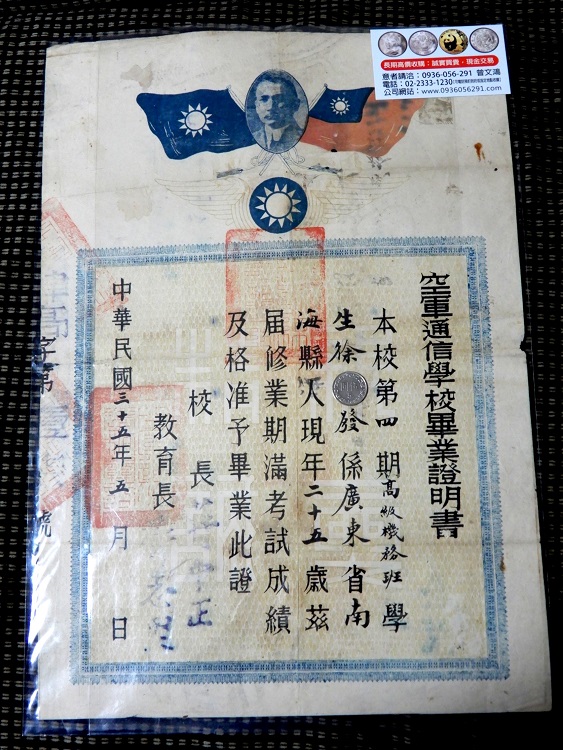 長期高價收購：誠實買賣，現金交易
意者請洽：0936-056-291 曾文鴻
電話：02-2333-1230
公司網站：www.0936056291.com
空軍通信學校畢業證明書
本校第四期高級機務班學
生徐發係廣東省南
海縣人現年二十五歲茲
屆修業期滿考試成績
及格准予畢業此證
校長
教育長
中華民國三十五年五月 日
字第
號